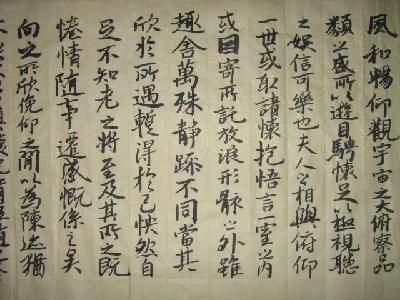 風和暢仰觀宇宙之大俯察品
類之盛所以遊目騁懷足以極視聽
之娛信可樂也夫人之相與俯仰
一世或取諸懷抱悟言一室之內
或因寄所託放浪形骸之外雖
趣舍萬殊靜躁不同當其
欣於所遇暫得於己怏然自
足不知老之將至及其所之既
惓情隨事遷感慨係之矣
向之所欣俛仰之間以為陳迹猶